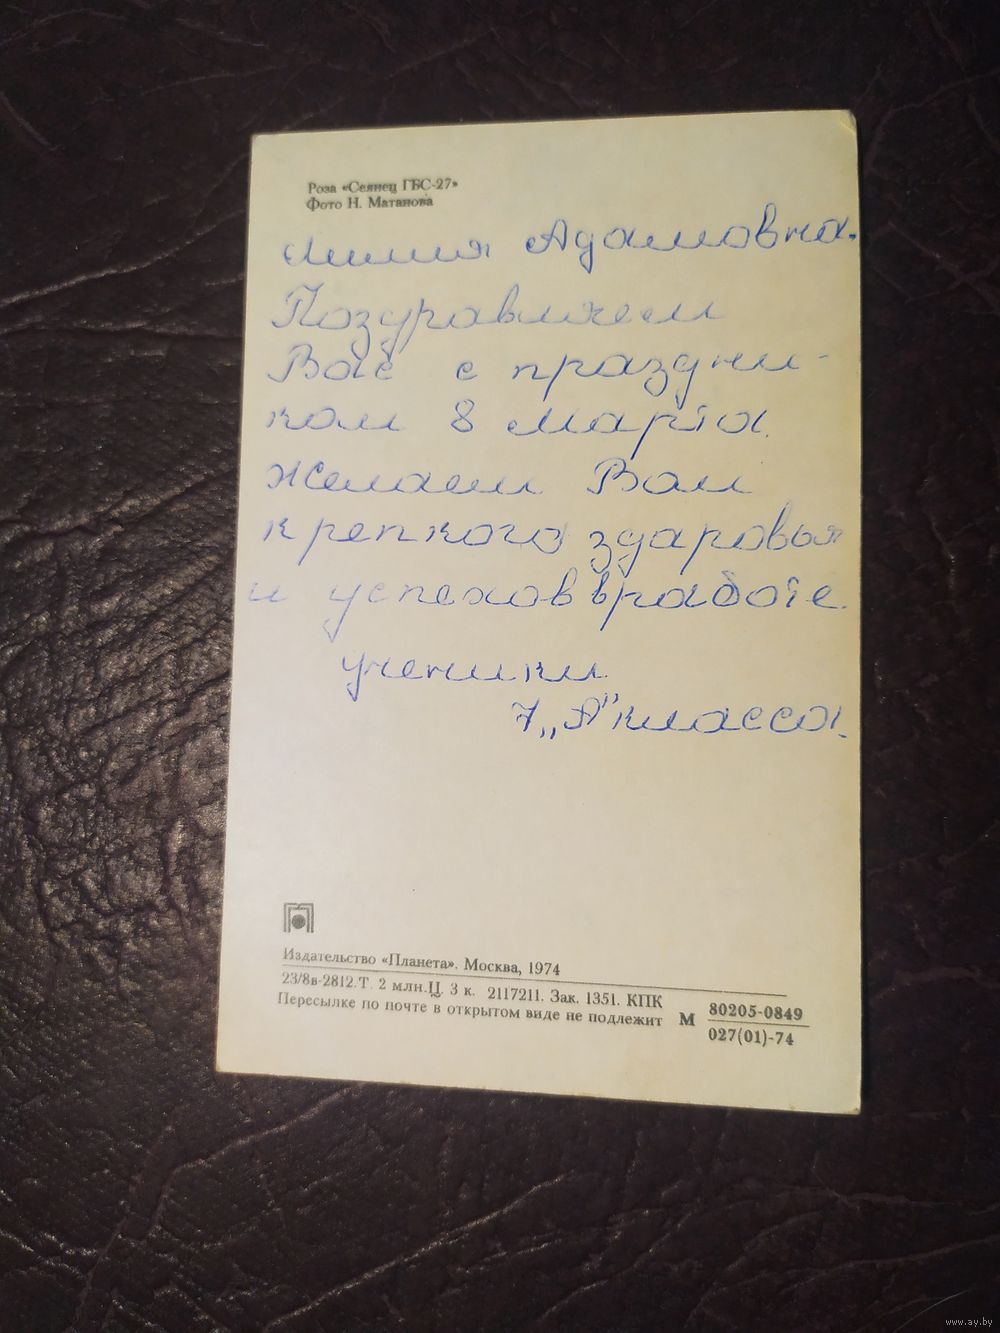 Роза «Сеянец ГБС-27»
Фото Н. Матанова
Лилия Адамовна.
Поздравляем
Вас с праздни-
ком 8 марта.
Желаем Вам
крепкого здаровья
и успехов в работе.
ученики
7 „А" класса.
Издательство «Планета». Москва, 1974
23/8в-2812. Т. 2 млн. Ц. 3 к. 2117211. Зак. 1351. КПК
Пересылке по почте в открытом виде не подлежит
М 80205-0849
027(01)-74
www.ay.by